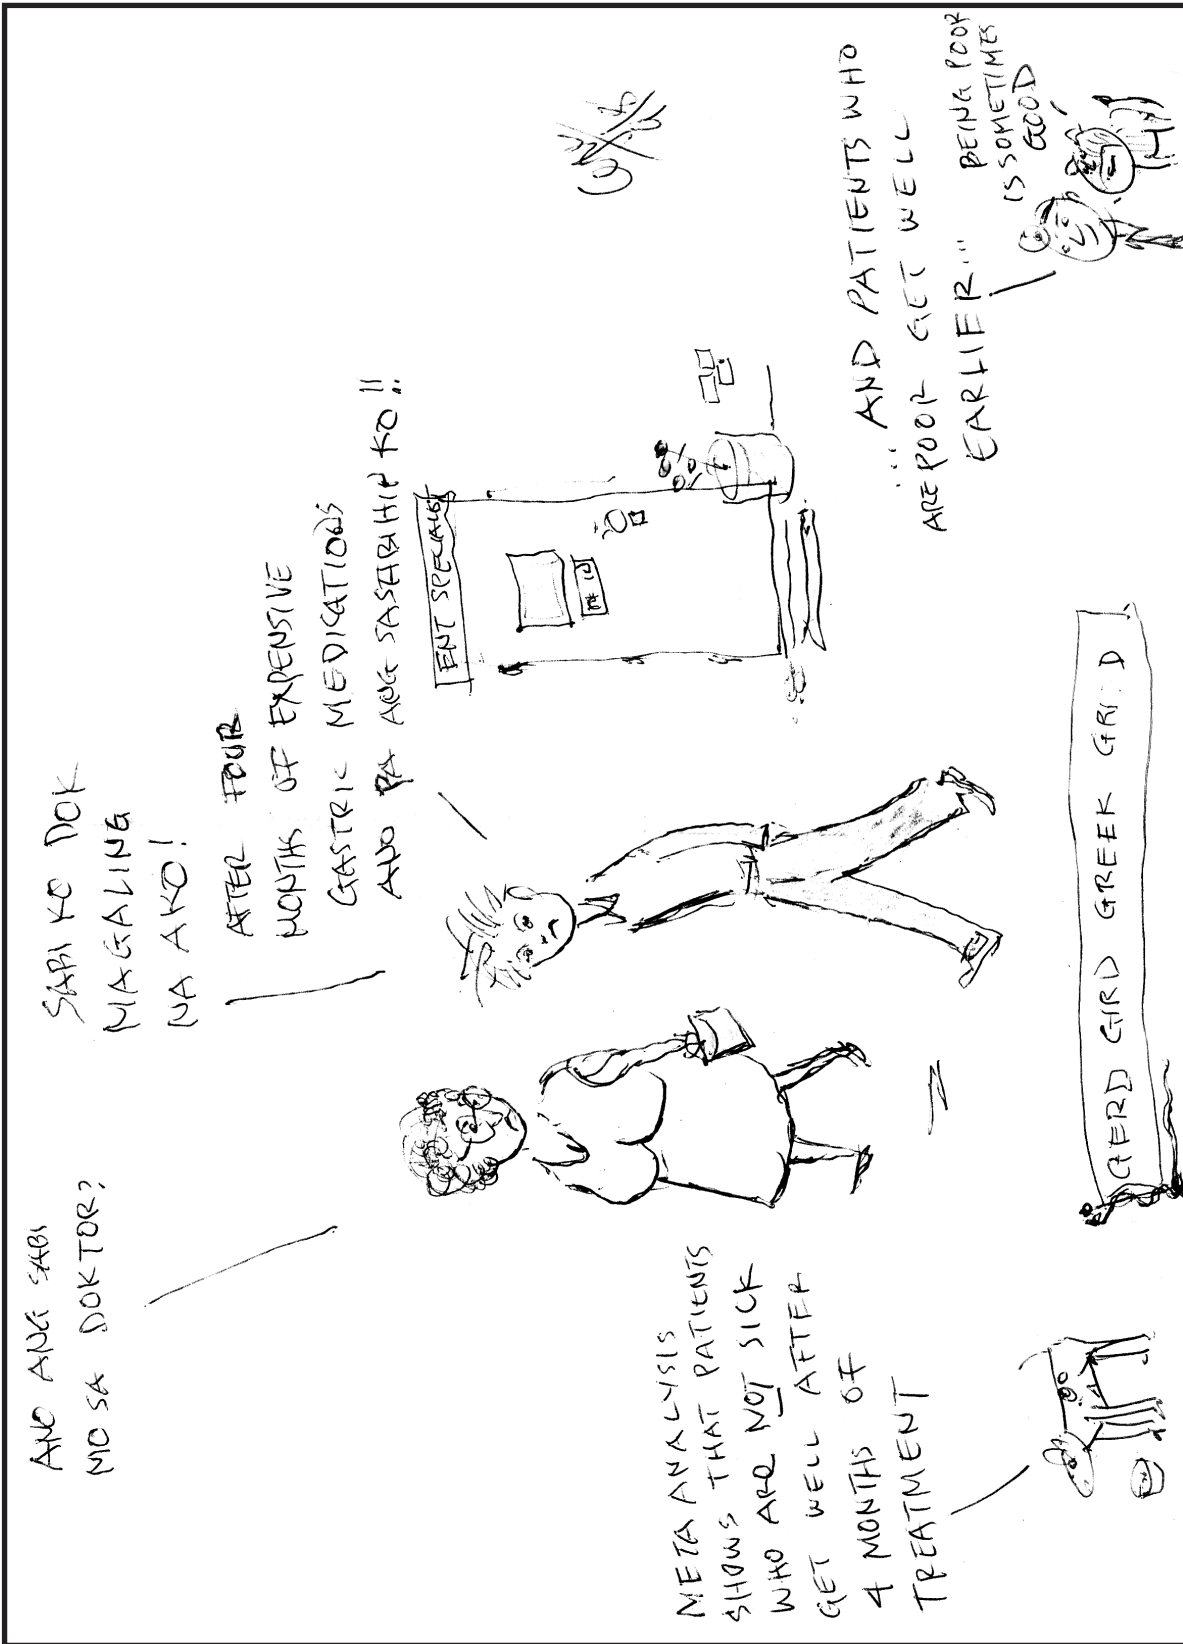 ANO ANG SABI
MO SA DOKTOR?
SABI KO DOK
MAGALING
NA AKO!
AFTER FOUR
MONTHS OF EXPENSIVE
GASTRIC MEDICATIONS
ANO PA ANG SASABIHIN KO!!
ENT SPECIALIST
META ANALYSIS
SHOWS THAT PATIENTS
WHO ARE NOT SICK
GET WELL AFTER
4 MONTHS OF
TREATMENT
GERD GIRD GREEK
... AND PATIENTS WHO
ARE POOR GET WELL
EARLIER...
BEING POOR
IS SOMETIMES
GOOD